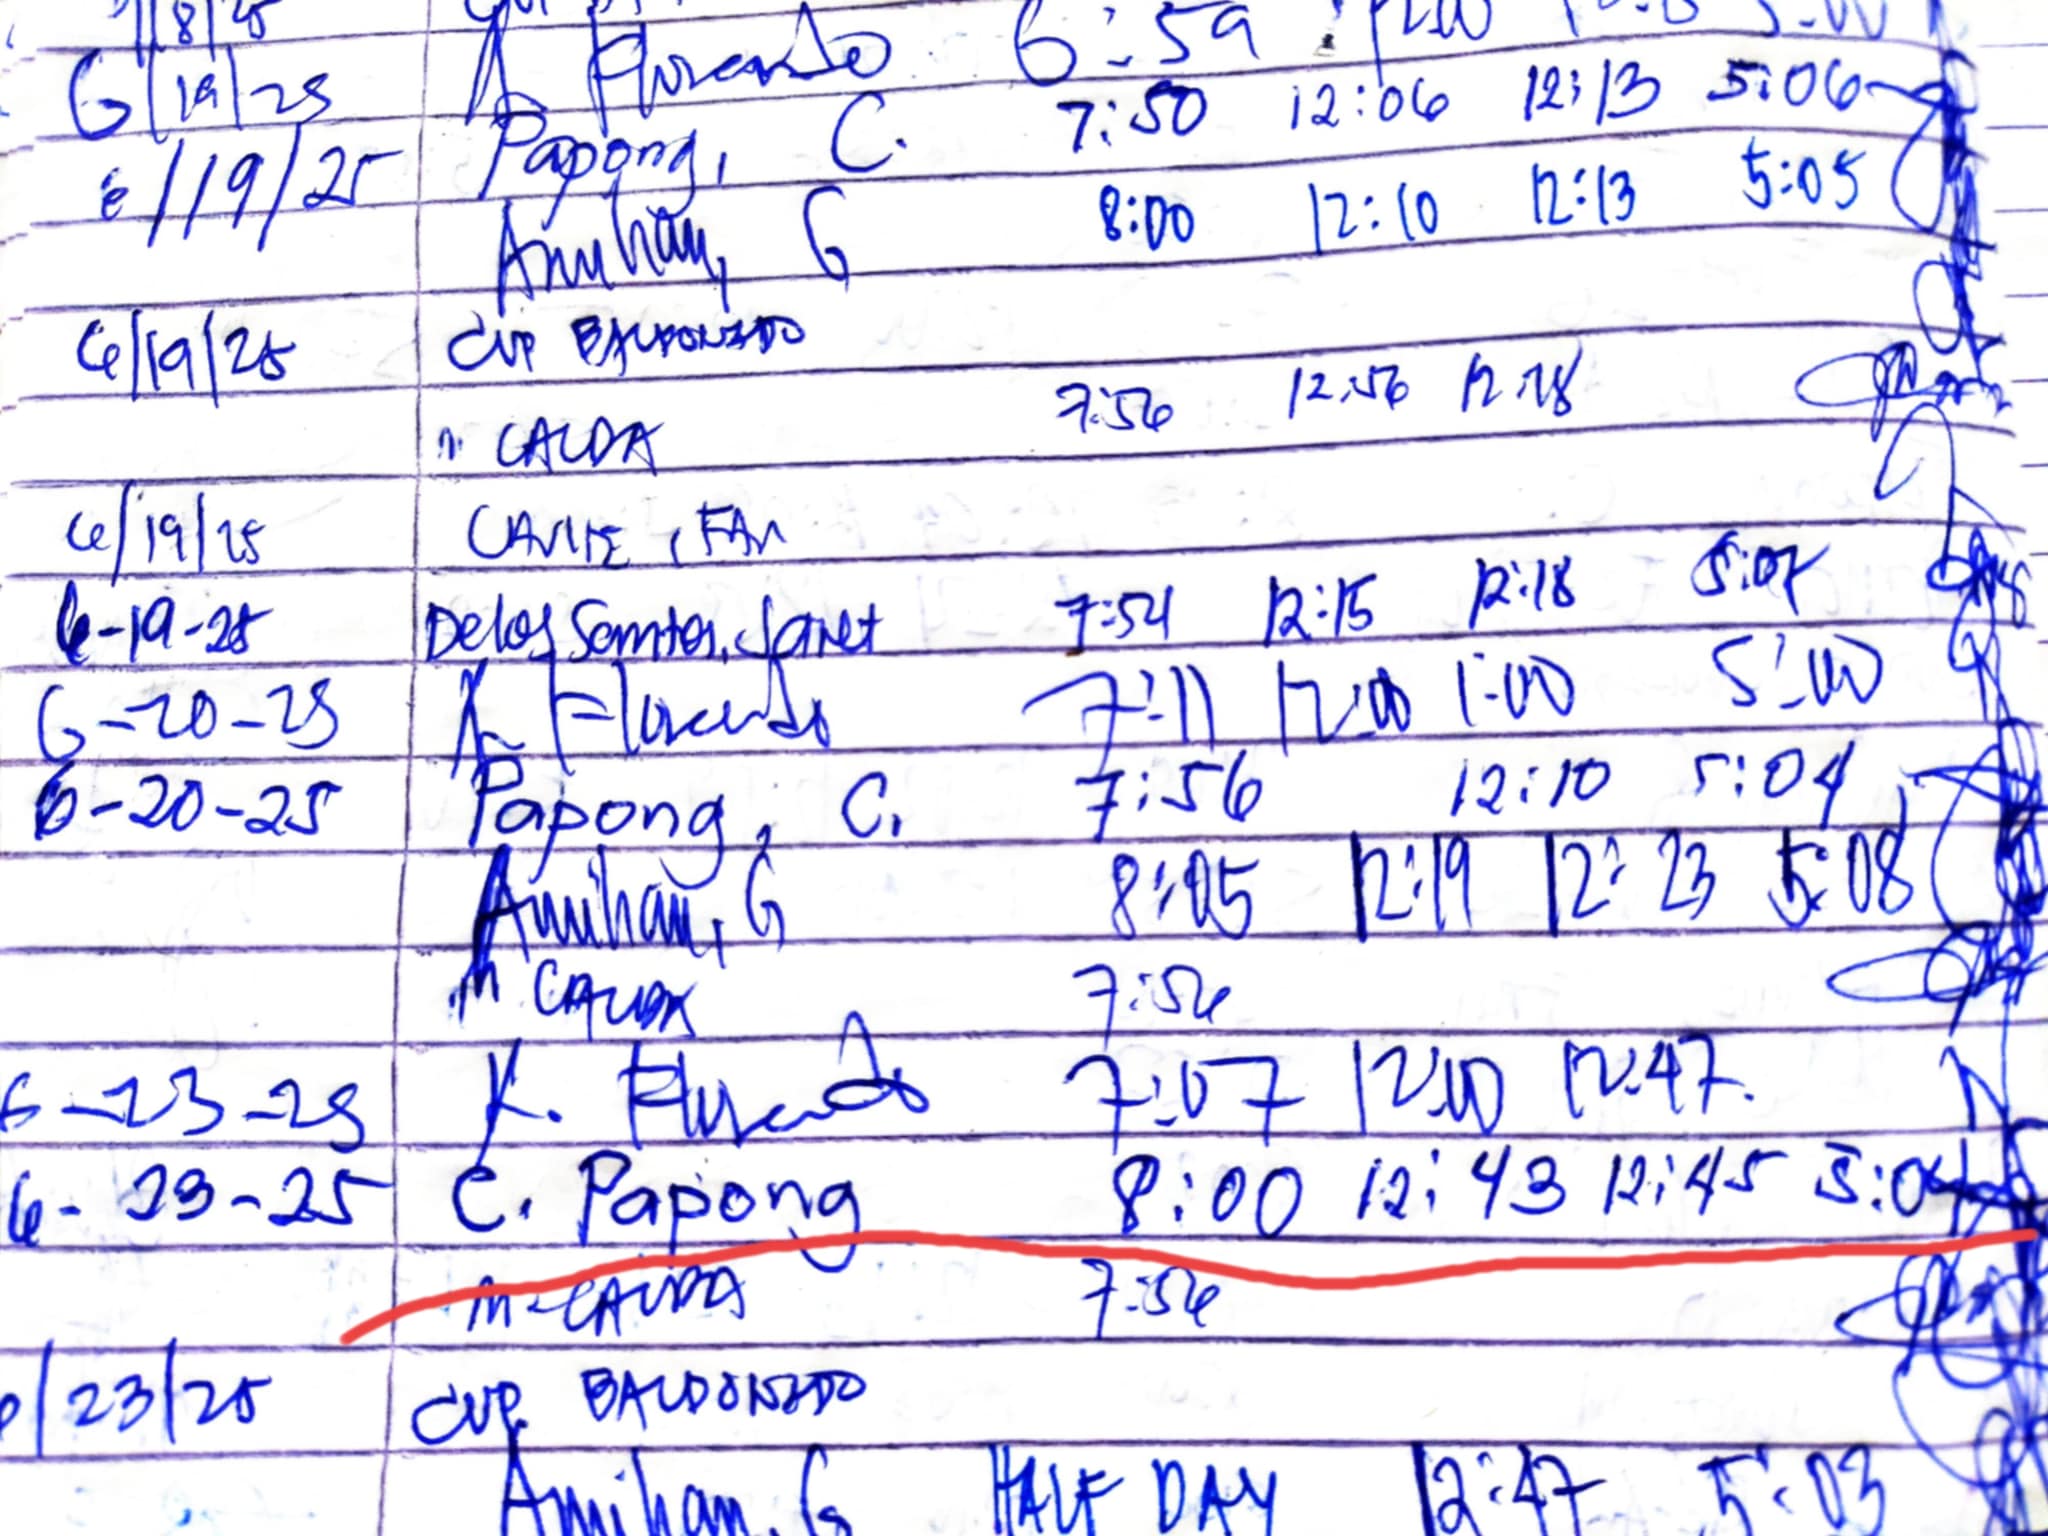 6/19/25 K Florendo 6:59
6/19/25 Papong, C. 7:50 12:06 12:13 5:06
Amihan, G 8:00 12:10 12:13 5:05
6/19/25 CVP BALDONADO
M. CALDA 7:56 12:56 12:18
6/19/25
6-19-25 Delos Santos, Janet 7:54 12:15 12:18 5:07
6-20-25 K Florendo 7:11 12:00 1:00 5:00
6-20-25 Papong, C. 7:56 12:10 5:04
Amihan, G 8:05 12:19 12:23 5:08
M CALDA 7:56
6-23-25 K. Florendo 7:07 12:00 12:47
6-23-25 C. Papong 8:00 12:43 12:45 5:04
M CALDA 7:56
/23/25 CVP. BALDONADO
Amihan, G HALF DAY 12:47 5:03